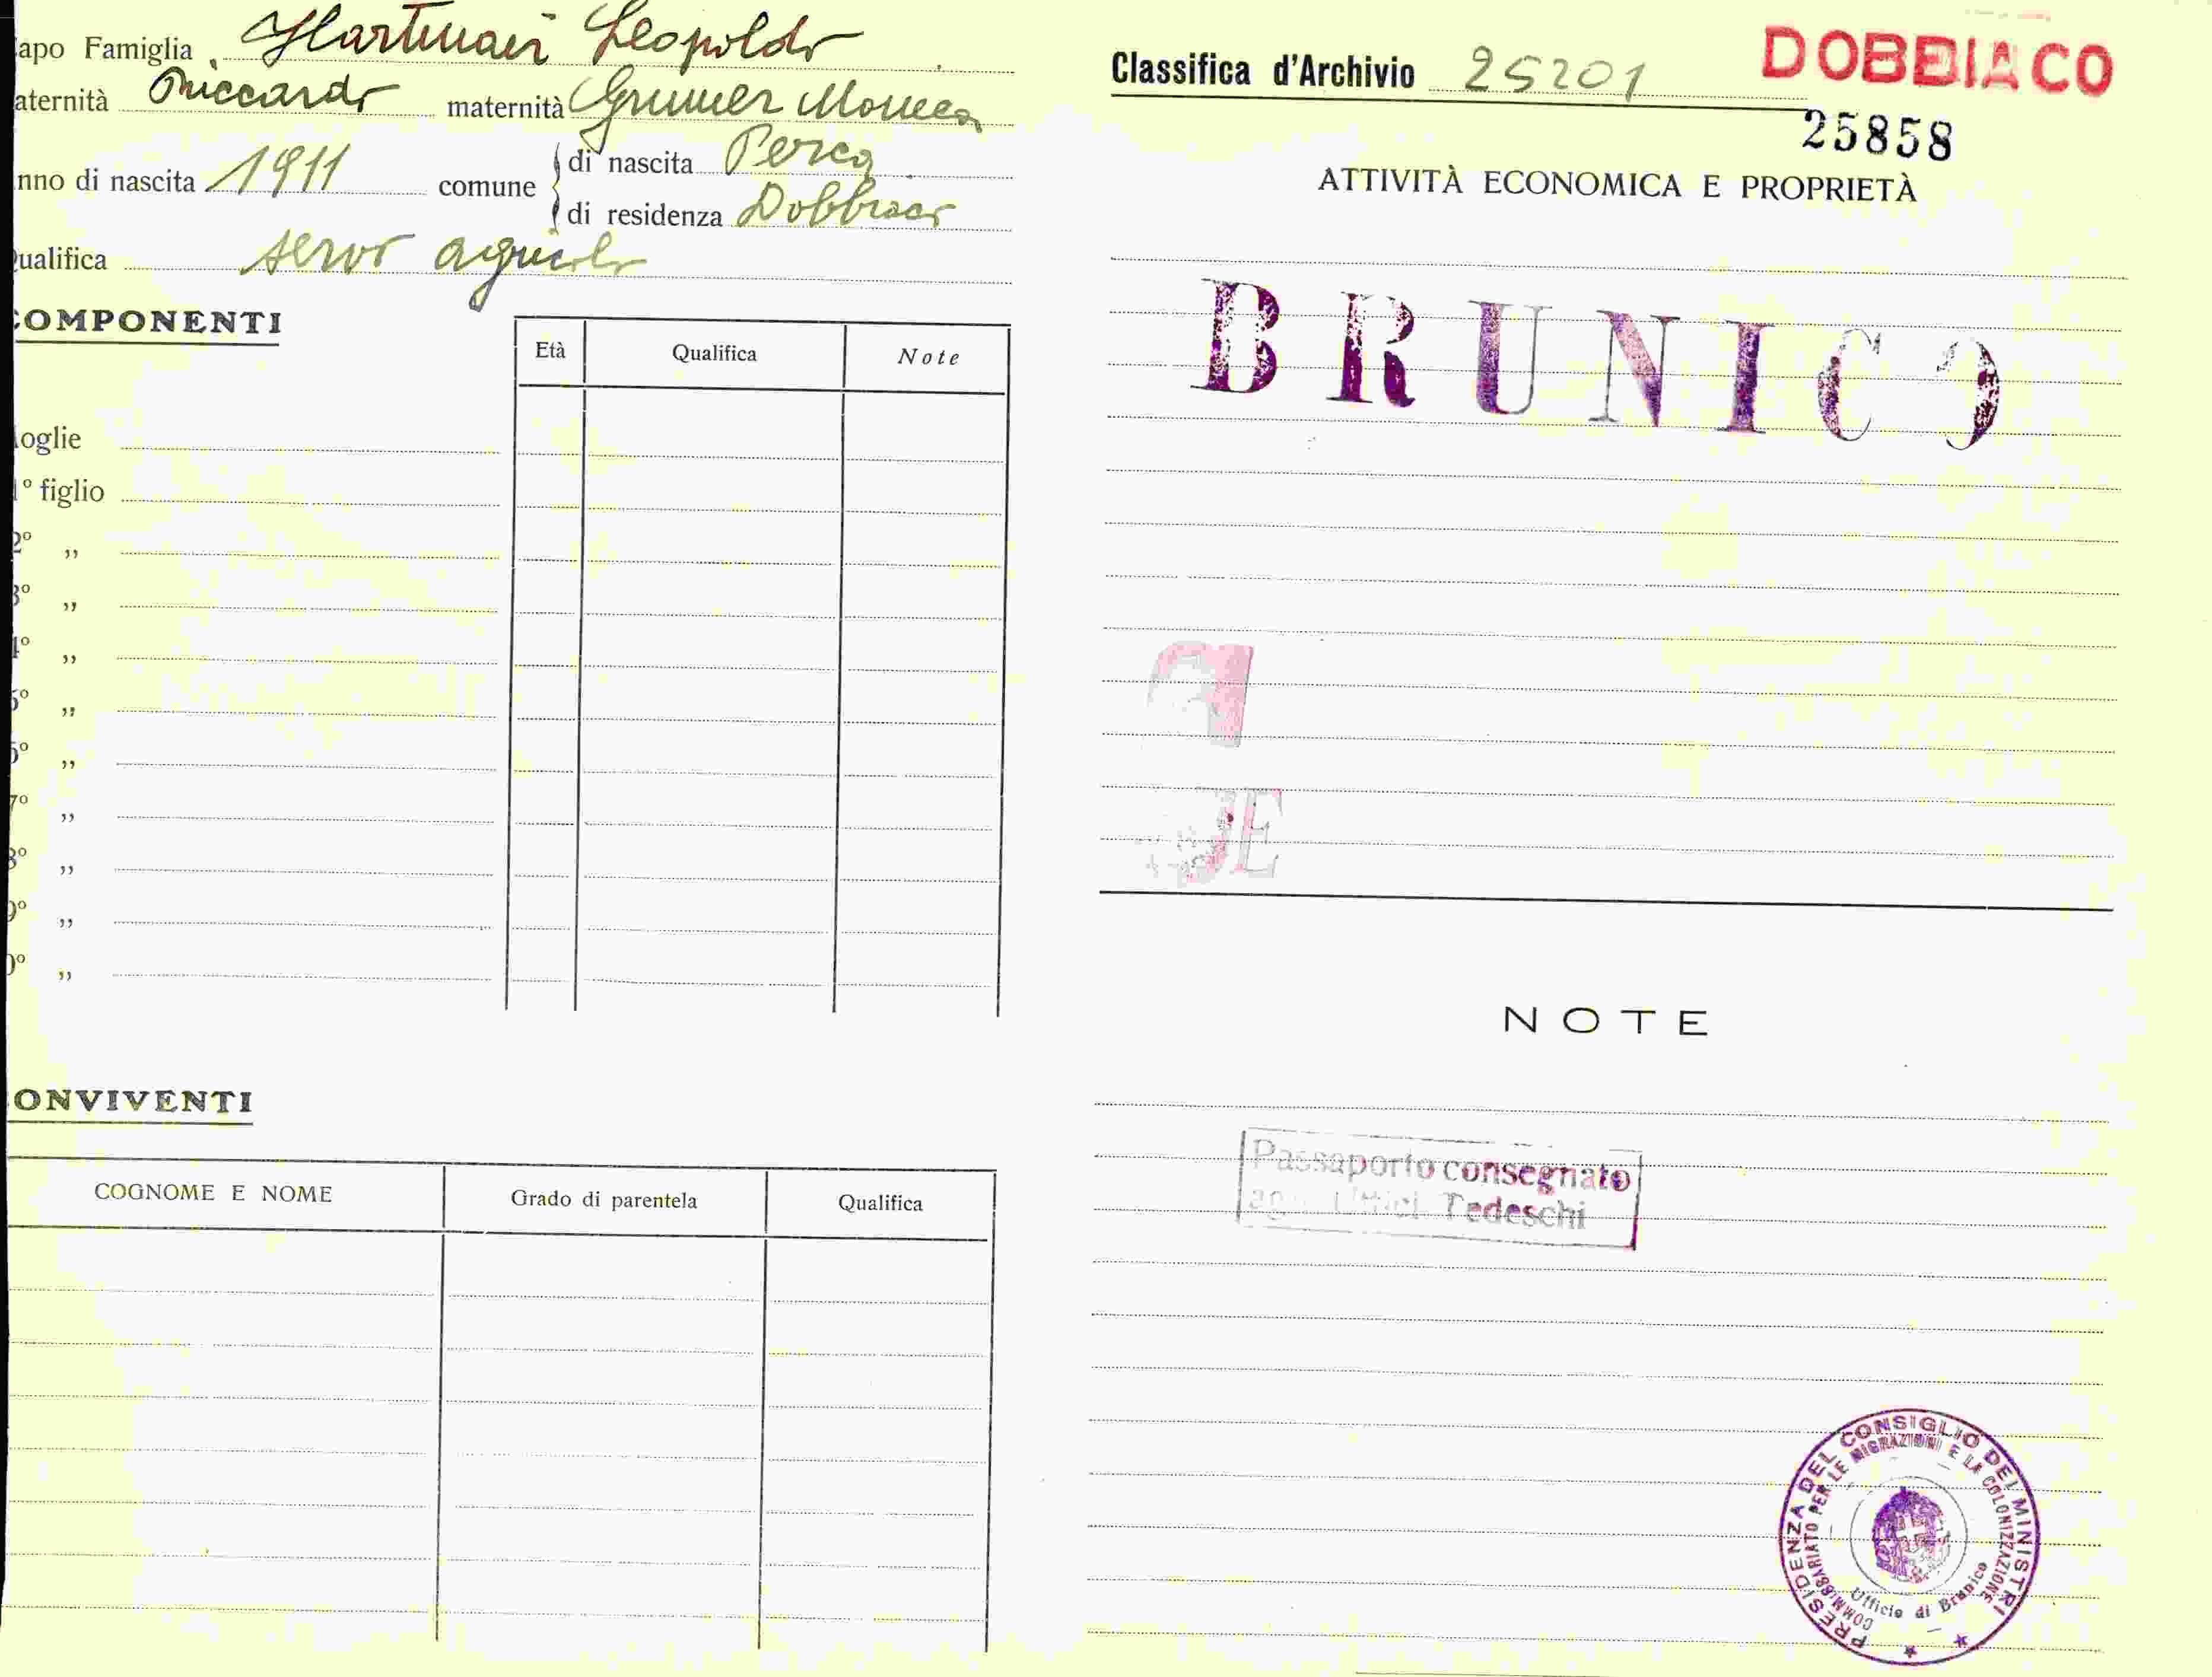 apo Famiglia Hartmair Leopoldo
aternità Riccardo maternità Gruner Monica
nno di nascita 1911 comune di nascita Perca
di residenza Dobbiaco
ualifica servo agricolo
COMPONENTI
Età Qualifica Note
oglie
1º figlio
2º ,,
3º ,,
4º ,,
5º ,,
6º ,,
7º ,,
8º ,,
9º ,,
0º ,,
ONVIVENTI
COGNOME E NOME Grado di parentela Qualifica
Classifica d'Archivio 25201
DOBBIACO
25858
ATTIVITÀ ECONOMICA E PROPRIETÀ
BRUNICO
NOTE
Passaporto consegnato
agli Uffici Tedeschi
PRESIDENZA DEL CONSIGLIO DEI MINISTRI
COMMISSARIATO PER LE MIGRAZIONI E LA COLONIZZAZIONE
Ufficio di Brunico